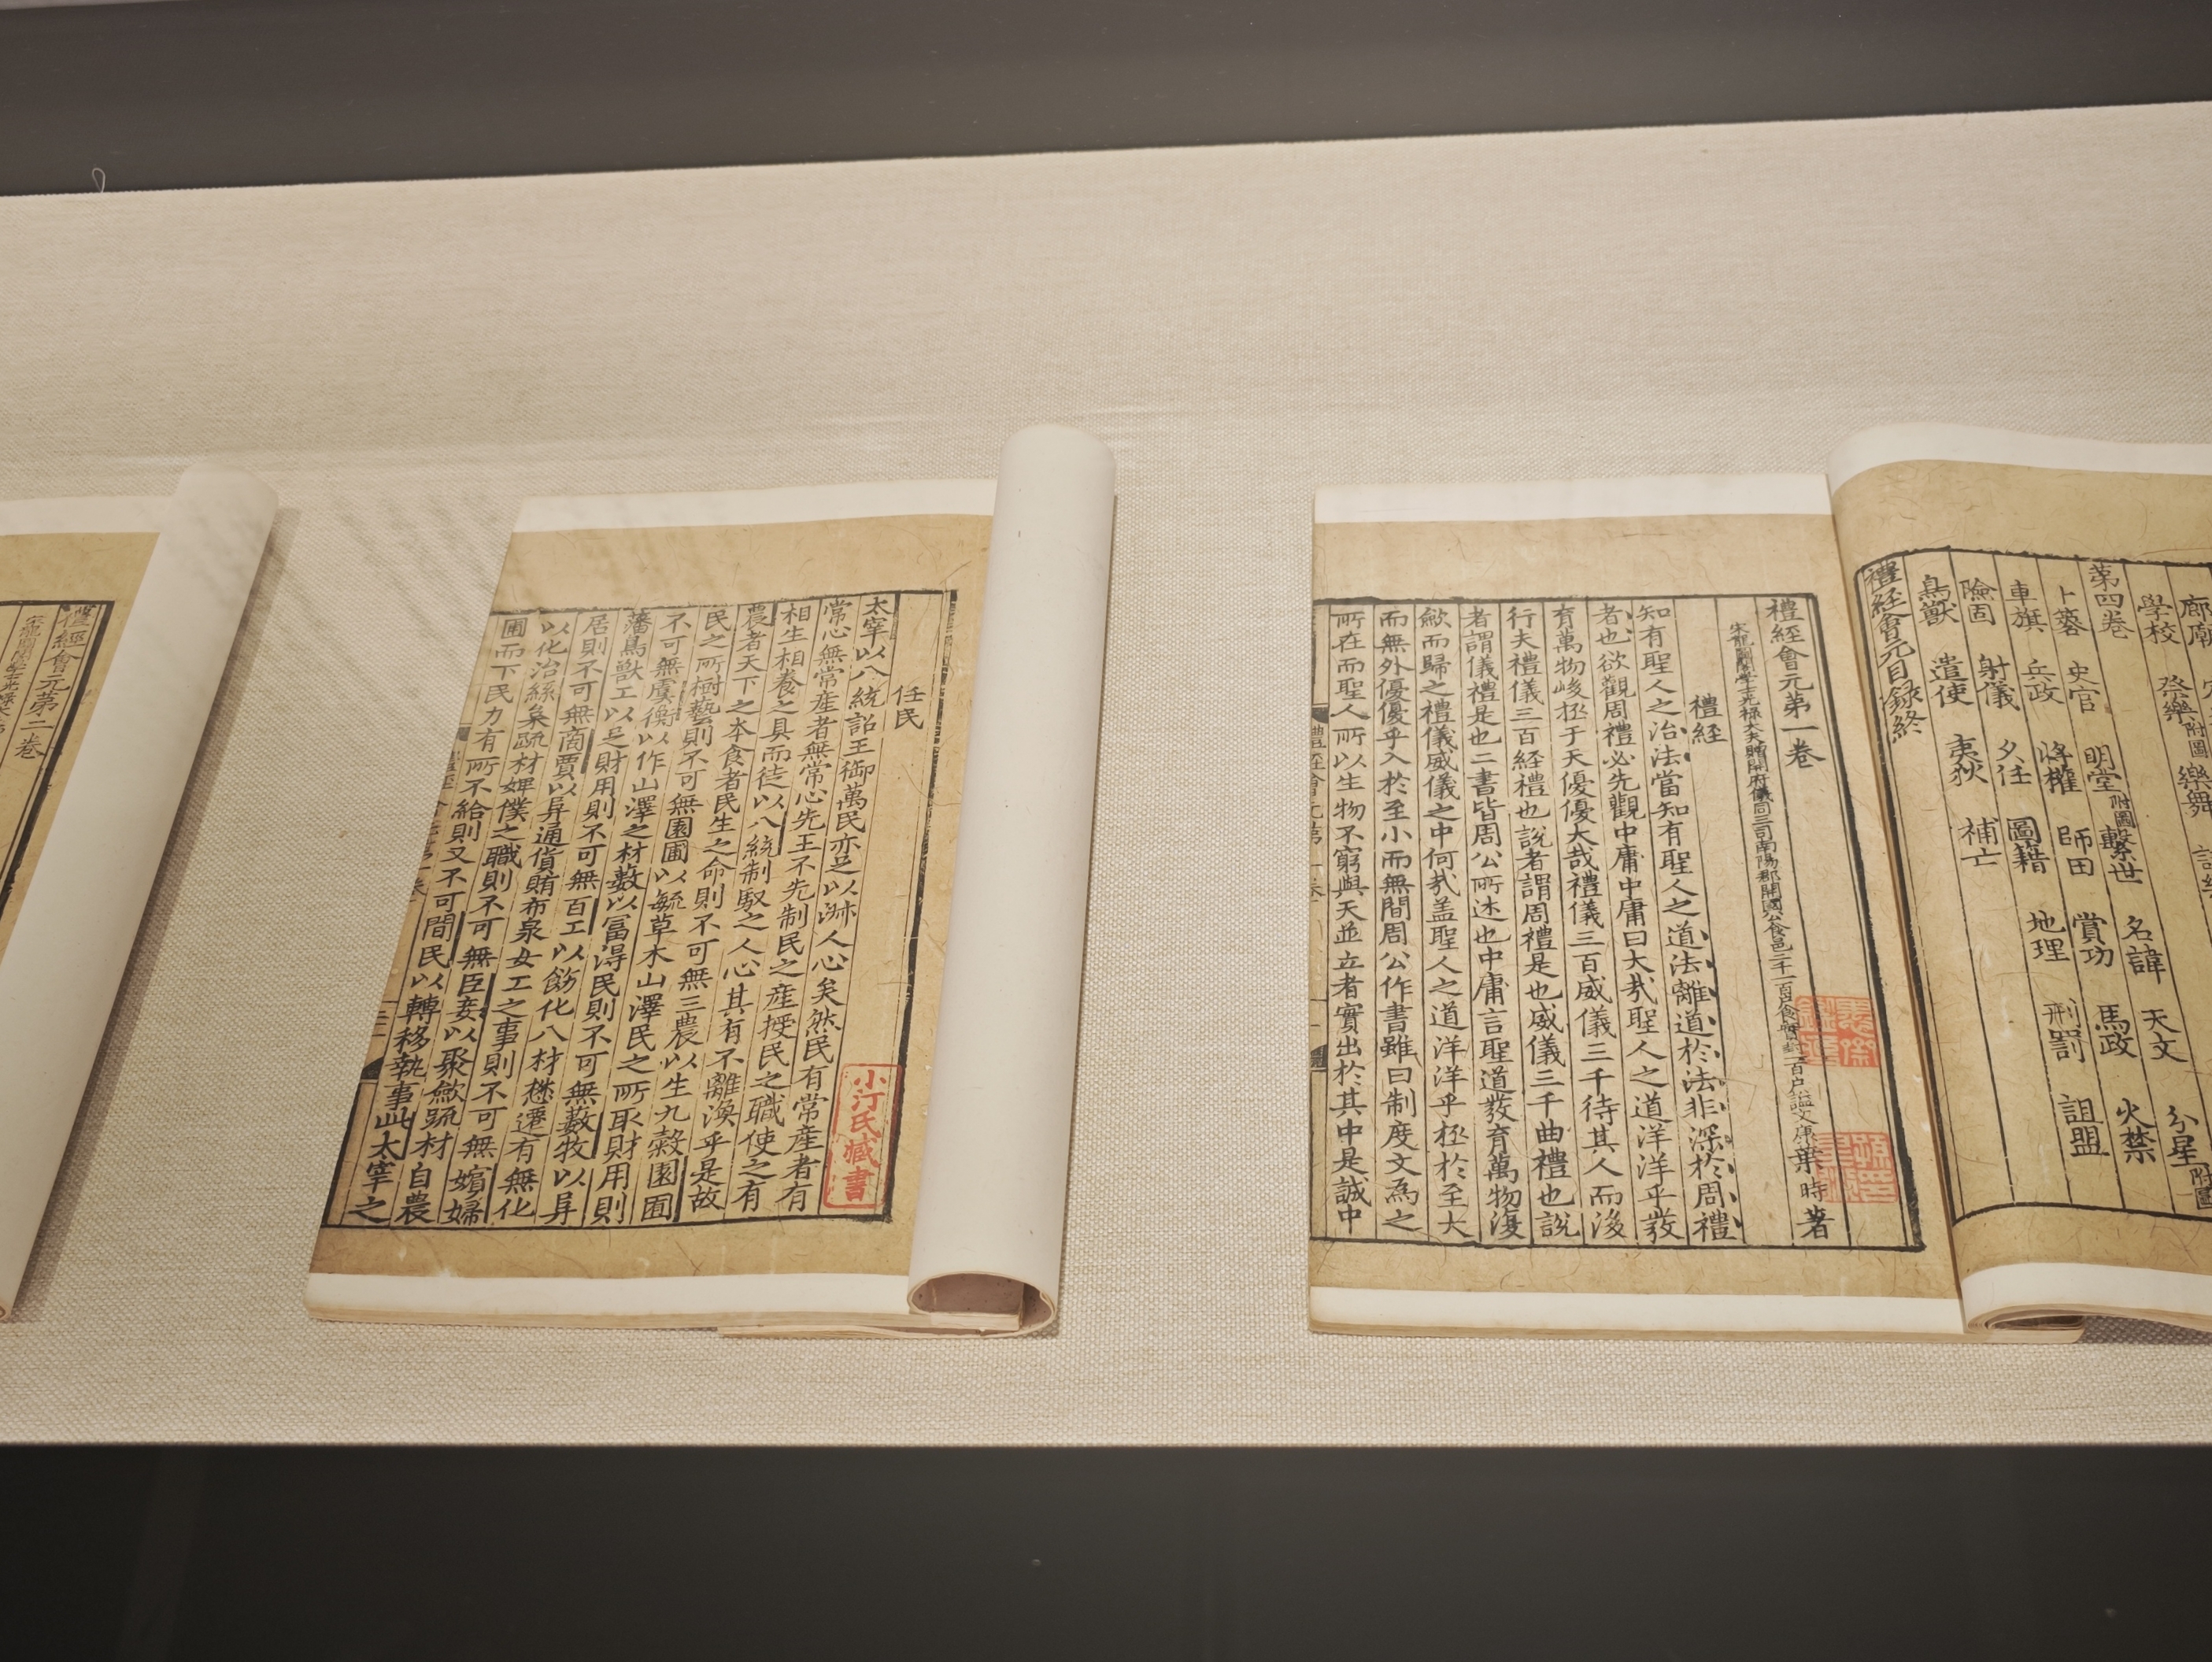 學校
第四卷
卜筮 史官 明堂附圖 繫世 名諱 天文 分星附圖
車旗 兵政 將權 師田 賞功 馬政 火禁
險固 射儀 夕任 圖籍 地理 刑罰 詛盟
鳥獸 遣使 夷狄 補亡
禮經會元目録終
禮經會元第一卷
宋龍圖閣學士光禄大夫贈開府儀同三司南陽郡開國公食邑二千一百户食實封一百户謚文康葉時著
禮經
知有聖人之治法當知有聖人之道法離道於法非深於周禮
者也欲觀周禮必先觀中庸中庸曰大㢤聖人之道洋洋乎發
育萬物峻極于天優優大哉禮儀三百威儀三千待其人而後
行夫禮儀三百経禮也說者謂周禮是也威儀三千曲禮也說
者謂儀禮是也二書皆周公所述也中庸言聖道發育萬物復
斂而歸之禮儀威儀之中何㢤盖聖人之道洋洋乎極於至大
而無外優優乎入於至小而無間周公作書雖曰制度文為之
所在而聖人所以生物不窮與天並立者實出於其中是誠中
任民
太宰以八統詔王御萬民亦足以淑人心矣然民有常產者有
常心無常產者無常心先王不先制民之產授民之職使之有
相生相養之具而徒以八統制馭之人心其有不離渙乎是故
農者天下之本食者民生之命則不可無三農以生九穀園圃
民之所樹藝則不可無園圃以毓草木山澤民之所取財用則
不可無虞衡以作山澤之材藪以富得民則不可無藪牧以阜
藩鳥獸工以足財用則不可無百工以飭化八材懋遷有無化
居則不可無商賈以阜通貨賄布帛女工之事則不可無嬪婦
以化治絲枲疏材婢僕之職則不可無臣妾以聚斂疏材自農
圃而下民力有所不給則又不可間民以轉移執事此太宰之
小汀氏藏書
禮經會元第二卷